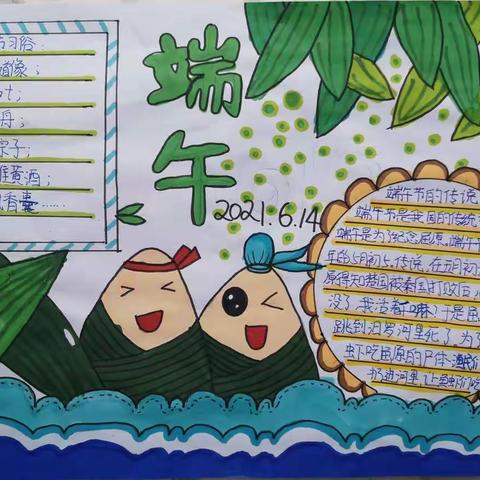 习俗：
像；
丹；
粽子；
雄黄酒；
香囊……
端午
2021.6.14
端午节的传说
端午节是我国的传统
端午是为了纪念屈原。端午节
年的5月初5。传说，在五月初
原得知楚国被秦国打败后，
没了我活着干嘛？于是屈
跳到汨罗河里死了。为了
虾吃屈原的尸体，
扔进河里，让鱼虾们吃